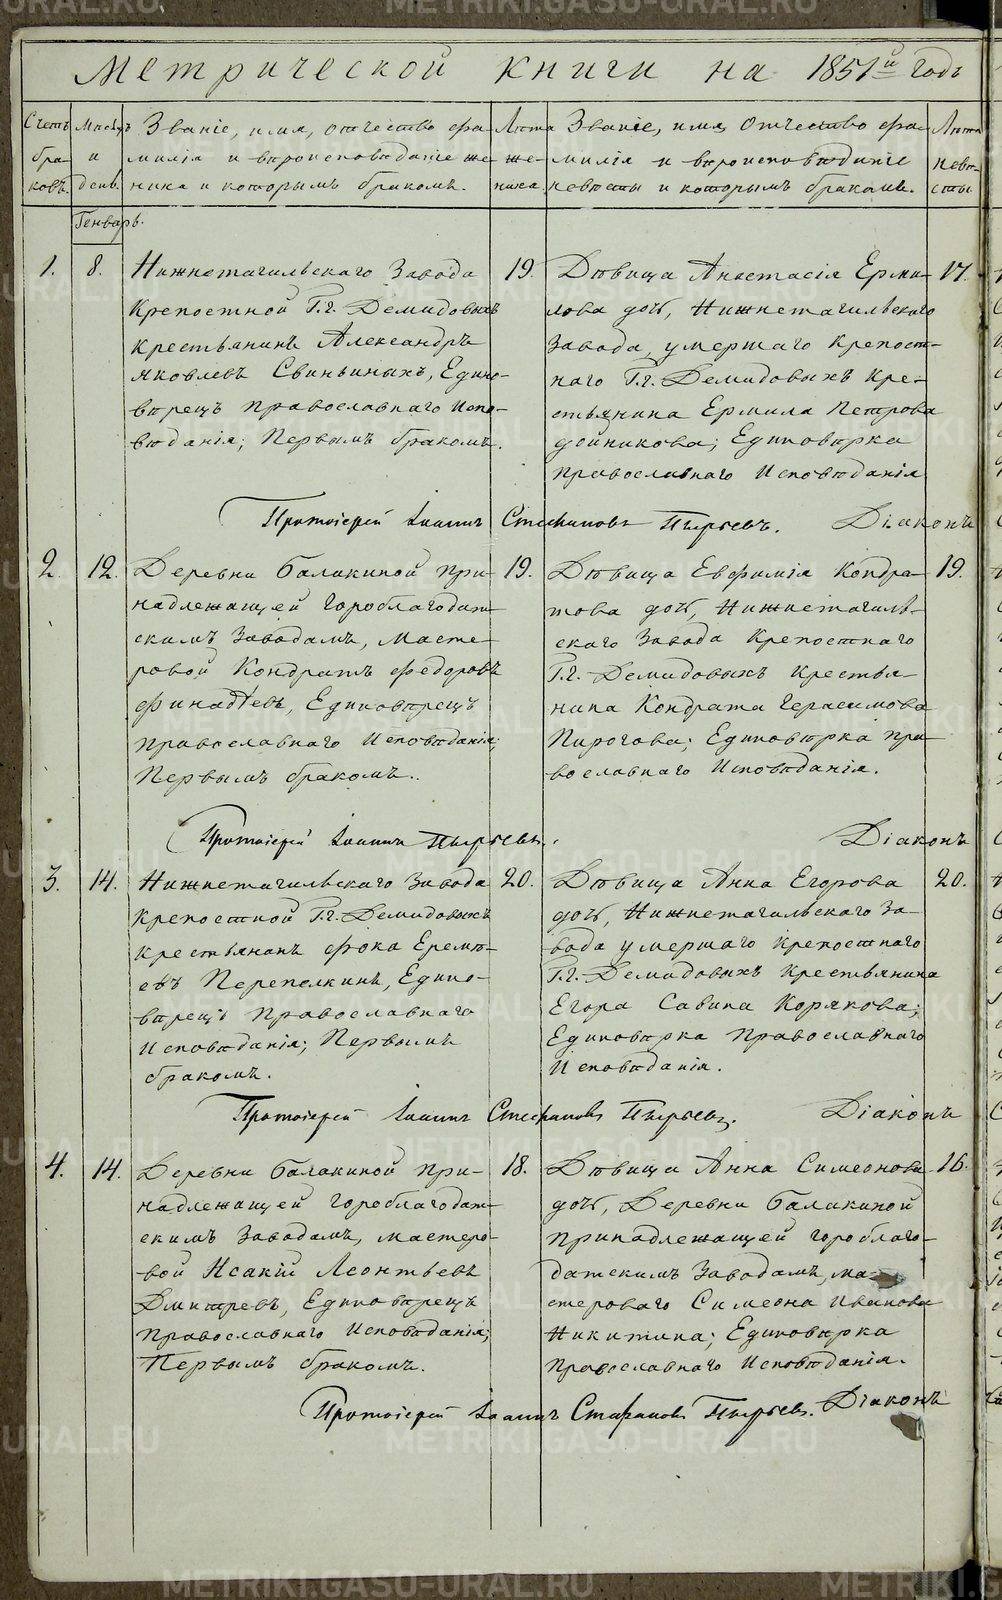 Метрической книги на 1851й годъ
Счетъ браковъ.
Мѣсяцъ и день.
Званіе, имя, отчество, фа-
милія и вѣроисповѣданіе же-
ниха и которымъ бракомъ.
Лѣта же-
ниха.
Званіе, имя, отчество фа-
милія и вѣроисповѣданіе
невѣсты и которымъ бракомъ.
Лѣта
невѣ-
сты
Генварь.
1.
8.
Нижнетагильскаго Завода
крепостной Г.г. Демидовыхъ
крестьянинъ Александръ
Яковлевъ Свиньиныхъ, Едино-
вѣрецъ православнаго Испо-
вѣданія; Первымъ бракомъ.
19.
Дѣвица Анастасія Ерми-
лова дочь, Нижнетагильскаго
Завода, умершаго крепост-
наго Г.г. Демидовыхъ кре-
стьянина Ермила Петрова
дойникова; Единовѣрка
православнаго Исповѣданія
17.
Протоіерей Іоаннъ Стефановъ Пырьевъ. Діаконъ
2.
12.
Деревни Балакиной при-
надлежащей Гороблагодат-
скимъ Заводамъ, Масте-
ровой Кондратъ Федоровъ
Финадѣевъ, Единовѣрецъ
православнаго Исповѣданія;
Первымъ бракомъ.
19.
Дѣвица Евфимія Кондра-
това дочь, Нижнетагиль-
скаго Завода Крепостнаго
Г.г. Демидовыхъ крестья-
нина Кондрата Герасимова
Пирогова; Единовѣрка пра-
вославнаго Исповѣданія.
19.
Протоіерей Іоаннъ Пырьевъ. Діаконъ
3.
14.
Нижнетагильскаго Завода
крепостной Г.г. Демидовыхъ
крестьянинъ Фока Еремѣ-
евъ Перепелкинъ, Едино-
вѣрецъ православнаго
Исповѣданія; Первымъ
бракомъ.
20.
Дѣвица Анна Егорова
дочь, Нижнетагильскаго За-
вода умершаго крепостнаго
Г.г. Демидовыхъ крестьянина
Егора Савина Корякова;
Единовѣрка православнаго
Исповѣданія.
20.
Протоіерей Іоаннъ Стефановъ Пырьевъ. Діаконъ
4.
14.
Деревни Балакиной при-
надлежащей Гороблагодат-
скимъ Заводамъ, мастеро-
вой Исакій Леонтьевъ
Дмитревъ, Единовѣрецъ
православнаго Исповѣданія;
Первымъ бракомъ.
18.
Дѣвица Анна Симеонова
дочь, Деревни Балакиной
принадлежащей гороблаго-
датскимъ Заводамъ, ма-
стероваго Симеона Иванова
Никитина; Единовѣрка
православнаго Исповѣданія.
16.
Протоіерей Іоаннъ Стефановъ Пырьевъ. Діаконъ
METRIKI.GASO-URAL.RU